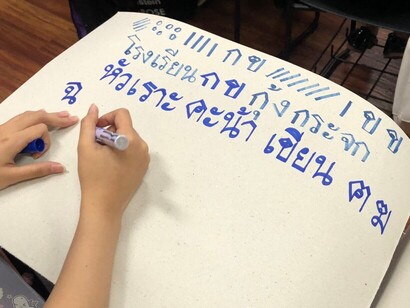 ก ข
โรงเรียน กข กุ้งกระจก
หัวเราะ คะน้า เขียน ฅ ฆ
ฉ